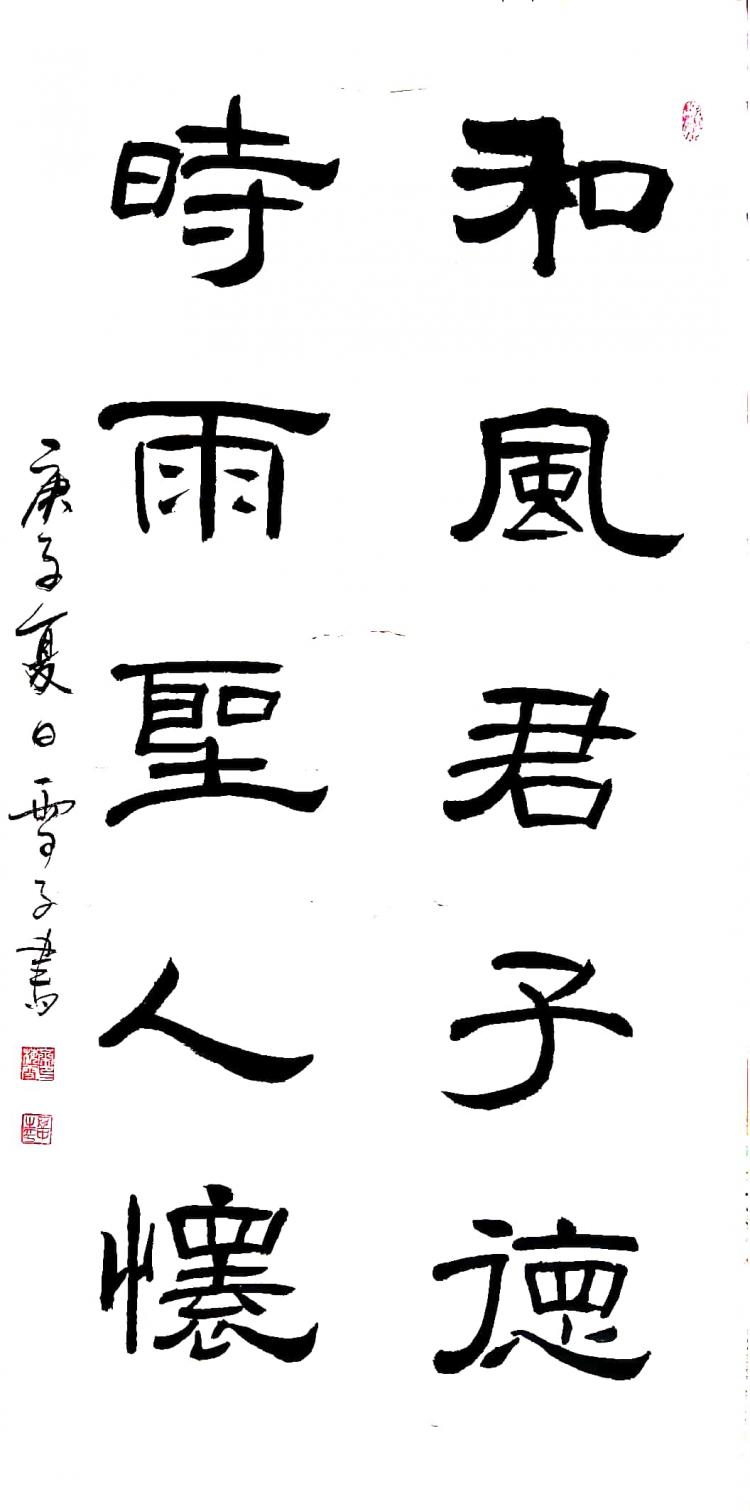 和風君子德
時雨聖人懷
庚子夏日雪子書